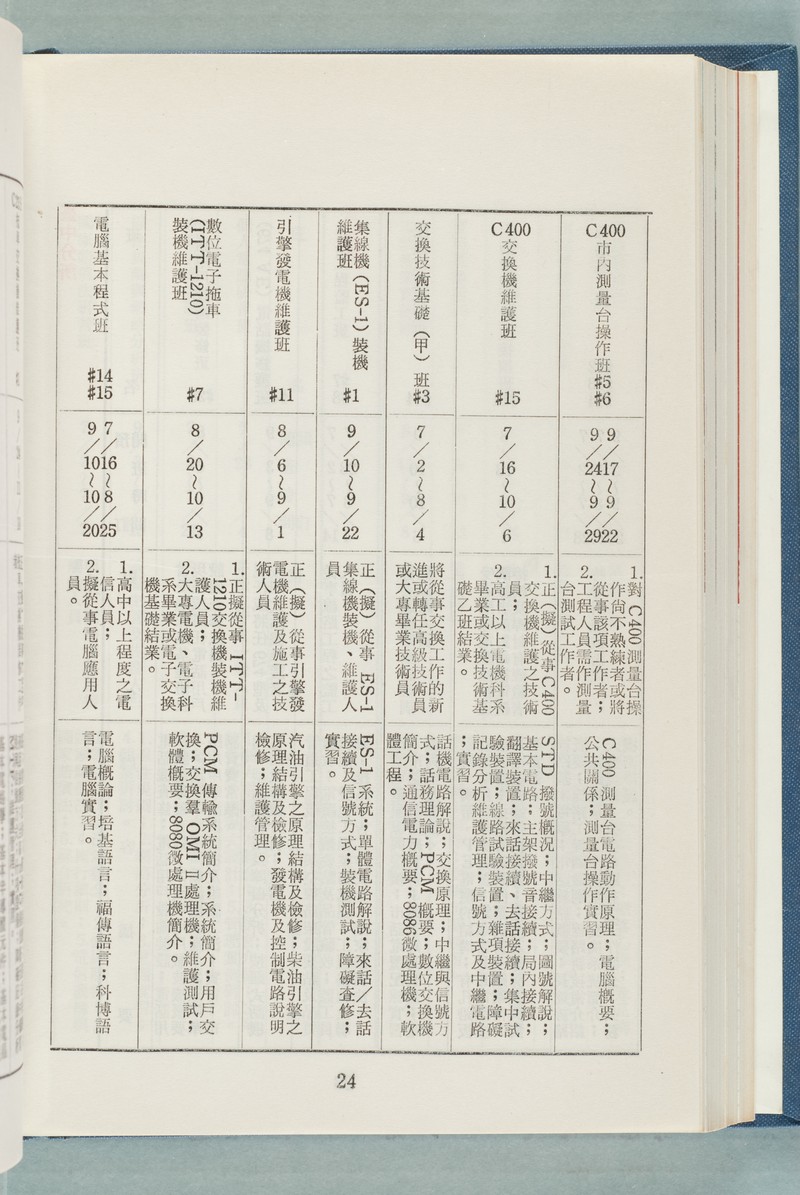 C400市內測量台操作班#5
#6
9/17~9/22
9/24~9/29
1.對C400測量台操
作尚不熟練者或將
從事該項工作者；
2.工程人員需作測量
台測試工作者。
C400測量台電路動作原理；電腦概要；
公共關係；測量台操作實習。
C400交換機維護班 #15
7/16~10/6
1.正(擬)從事C400
交換機維護之技術
員；
2.高工以上電機科系
畢業或交換技術基
礎乙班結業。
STD撥號概況；中繼方式；圖號解說；
基本電路；主架撥號音接續；局內接續；
翻譯裝置；來話接續、去話接續；集中試
驗裝置；線路試驗裝置；雜項裝置；障礙
記錄分析維護管理；信號方式及中繼電路
；實習。
交換技術基礎(甲)班 #3
7/2~8/4
將從事交換工作的新
進或轉任高級技術員
或大專畢業技術員
話機電路解說；交換原理；中繼與信號方
式；話務理論；PCM概要；數位交換機
簡介；通信電力概要；8086微處理機；軟
體工程。
集線機(ES-1)裝機
維護班 #1
9/10~9/22
正(擬)從事ES-1
集線機裝機、維護人
員
ES-1系統；單體電路解說；來話／去話
接續及信號方式；裝機測試；障礙查修；
實習。
引擎發電機維護班 #11
8/6~9/1
正(擬)從事引擎發
電機維護及施工之技
術人員
汽油引擎之原理結構及檢修；柴油引擎之
原理結構及檢修；發電機及控制電路說明
檢修；維護管理。
數位電子拖車
(ITT-1210)
裝機維護班 #7
8/20~10/13
1.正擬從事ITT-
1210交換機裝機維
護人員；
2.大專電機、電子科
系畢業或電子交換
機基礎結業。
PCM傳輸系統簡介；系統簡介；用戶交
換；交換羣OMⅡ處理機；維護測試；
軟體概要；8080微處理機簡介。
電腦基本程式班 #14
#15
7/16~8/25
9/10~10/20
1.高中以上程度之電
信人員；
2.擬從事電腦應用人
員。
電腦概論；培基語言；福傳語言；科博語
言；電腦實習。
24